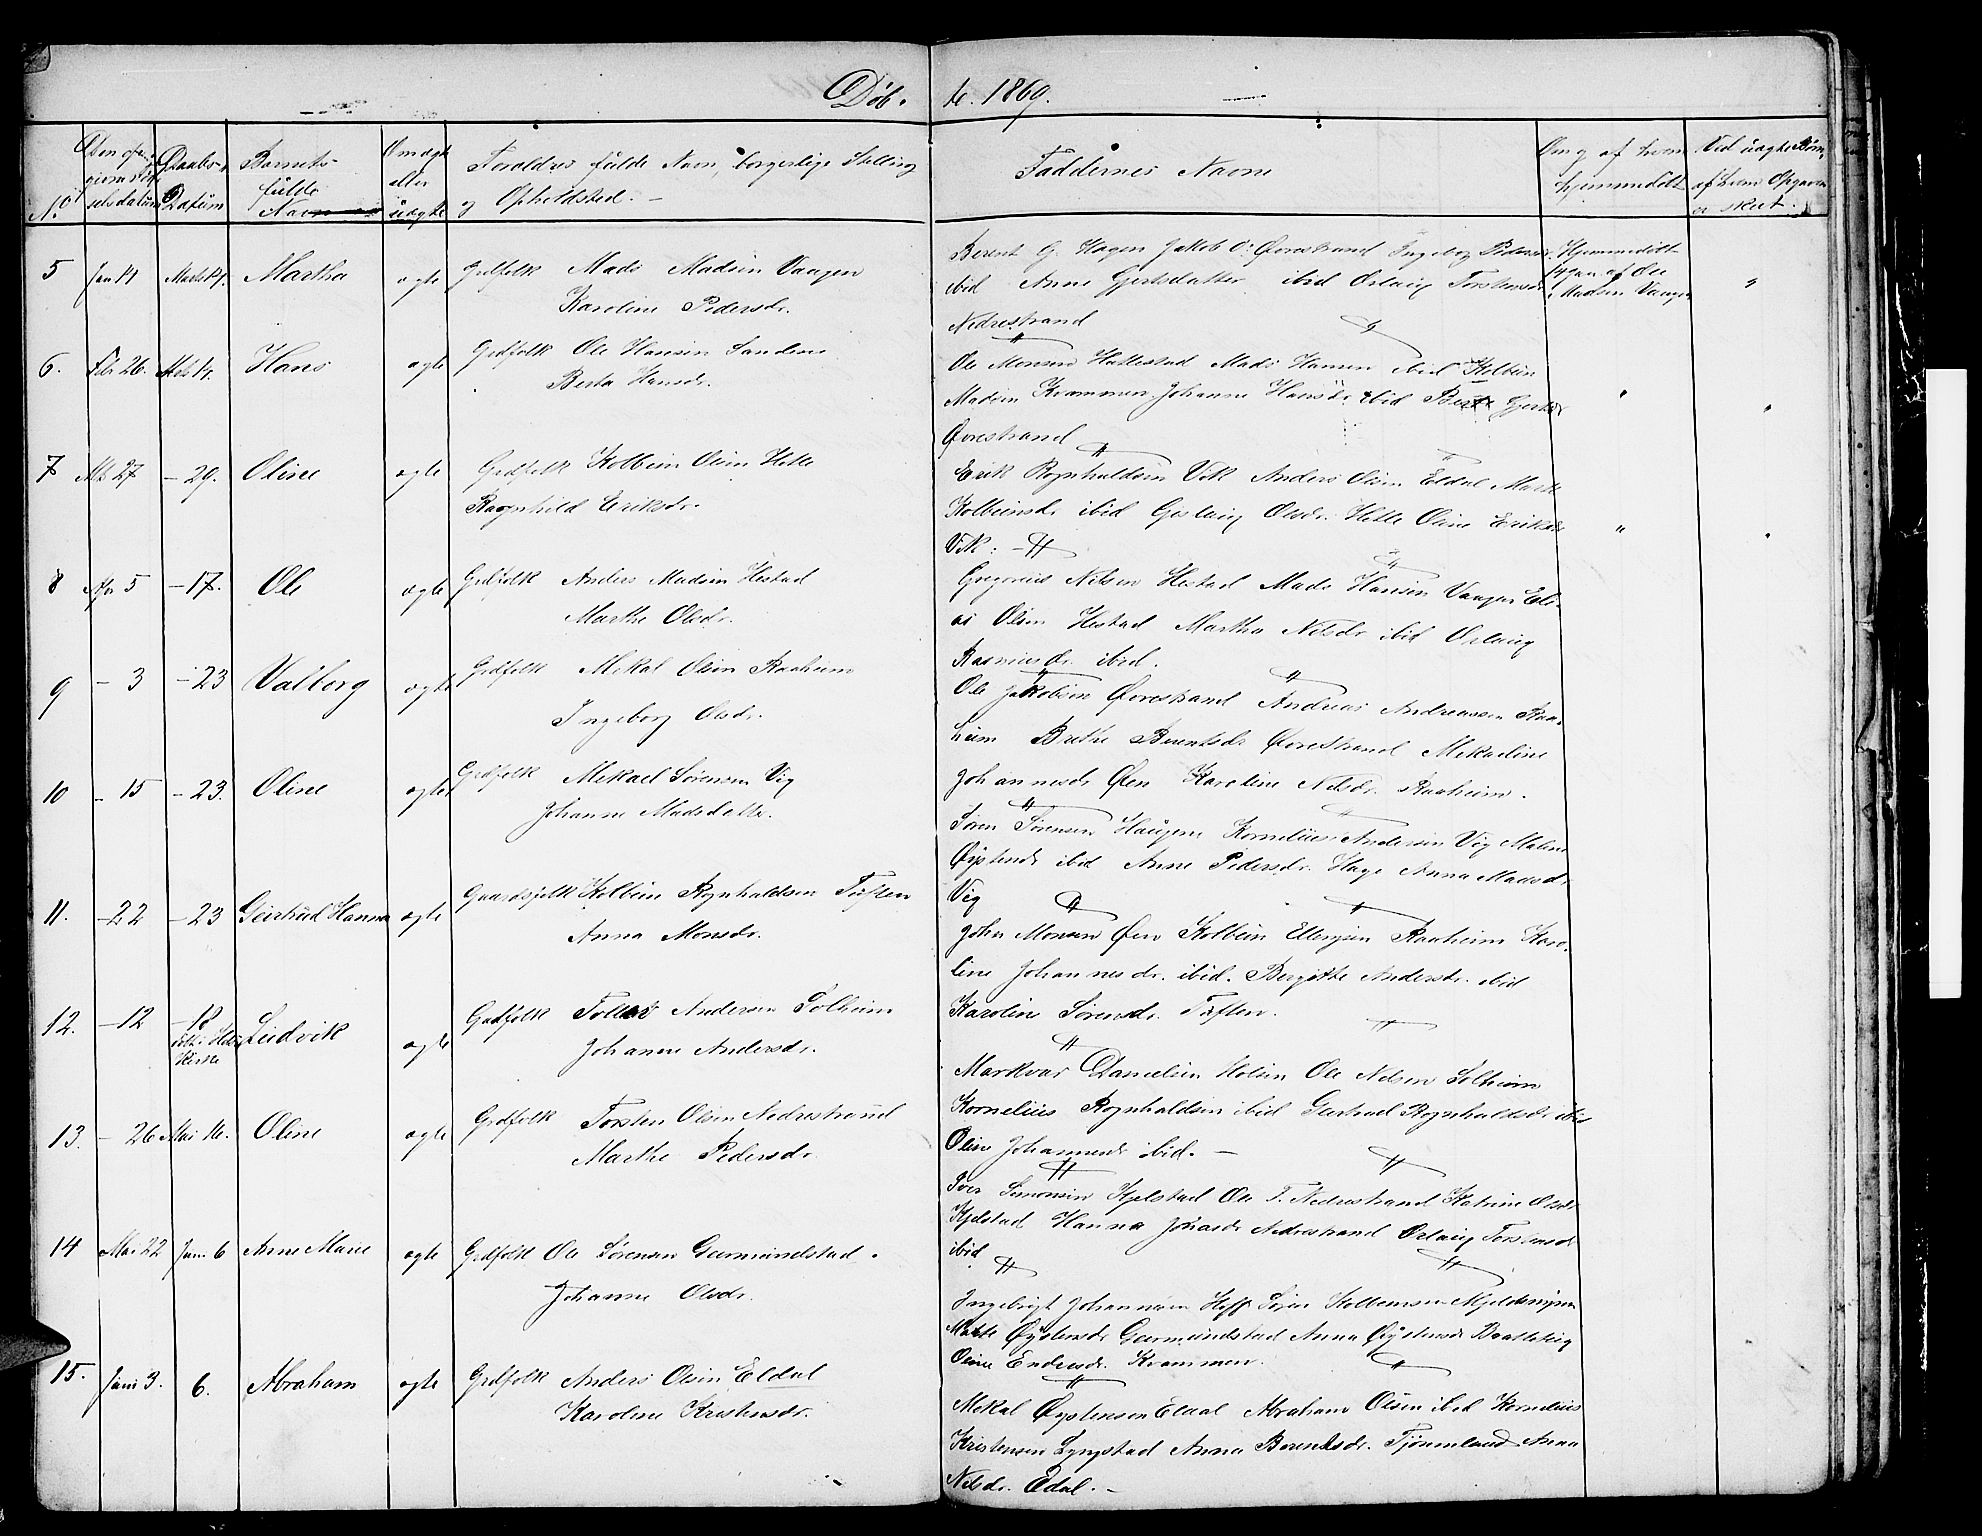 Døb. te. 1869.
No
Daabs-
Datum
Barnets
fulde
Navn
eller
uægte
Forældres fulde Navn, borgerlige Stilling
og Opholdsted. -
Faddernes Navne
Om og af hvem
hjemmedøbt
Ved uægte Børn,
af hvem Opgaven
er skeet.
5 Jan 14 Marts 14. Martha ægte Grdfolk Mads Madsen Vaagen
Karoline Pedersdr.
Berent G. Hagen Jakob O: Øvrestrand Ingeborg Pedersdr.
ibid Anne Gjertsdatter ibid Orlaug Torstensdr
Nedrestrand
Hjemmedøbt
Madsen Vaagen
6. Febr 26. Mts 14. Hans ægte Grdfolk Ole Hansen Sandene
Berta Hansdr.
Ole Monsen Hallestad Mads Hansen ibid Kolbein
Madsen Krammen Johanne Hansdr ibid Berte Gjertsdr
Øvrestrand
7 Mts 27 - 29. Oline ægte Grdfolk Kolbein Olsen Hetle
Ragnhild Eriksdr.
Erik Rognhaldsen Vik Anders Olsen Eldal Marte
Kolbeinsdr ibid Goslaug Olsdr. Hetle Oline Eriksdr
Vik: -
8 Apr 5 - 17. Ole ægte Grdfolk Anders Madsen Hestad
Marthe Olsdr.
Gregorius Nilsen Hestad Mads Hansen Vaagen Eli-
as Olsen Hestad Martha Nilsdr ibid Orlaug
Rasmusdr. ibid.
9 - 3 - 23 Valborg ægte Grdfolk Mikal Olsen Raaheim
Ingeborg Olsdr.
Ole Jakobsen Øvrestrand Andreas Andreassen Raa-
heim Brethe Berentsdr Øvrestrand Mikaeline
Johannesdr Øen Karoline Nilsdr. Raaheim.
10 - 15 - 23. Oline ægte Grdfolk Mikael Sørensen Vig
Johanne Madsdatter.
Søren Sørensen Haugene Kornelius Andersen Vig Malene
Øystensdr ibid Anne Pedersdr. Hage Anna Madsdr
Vig
11. - 22 - 23 Geirtrud Hanna ægte Gaardsfolk Kolbein Rognhaldsen Tøften
Anna Monsdr.
John Monsen Øen Kolbein Ellingsen Raaheim Karo-
line Johannesdr. ibid. Bergithe Andersdr. ibid
Karoline Sørensdr. Tøften.
12. - 12 - 18 Ludvik ægte Grdfolk Tollev Andersen Solheim
Johanne Andersdr.
Markvar Danielsen Holsen Ole Nilsen Solheim
Kornelius Rognhaldsen ibid Gertrud Rognhaldsdr ibid
Oline Johannesdr ibid. -
13. - 26 Mai 16. Oline ægte Grdfolk Torsten Olsen Nedrestrand
Marthe Pedersdr.
Iver Simonsen Kjelstad Ole T. Nedrestrand Katrine Olsdr
Kjelstad Hanna Jonasdr Nedrestrand Orlaug Torstensdr
ibid
14 Mai 22 Juni 6 Anne Marie ægte Grdfolk Ole Sørensen Geirmundstad.
Johanne Olsdr.
Ingebrigt Johannesen Hoff Søren Kolbeinsen
Øystensdr Geirmundstad Anna Øystensdr
Oline Endresdr. Krammen.
15. Juni 3. 6. Abraham ægte Grdfolk Anders Olsen Eldal
Karoline Kristensdr.
Mikal Øystensen Eldal Abraham Olsen ibid Kornelius
Kristensen Lyngstad Anna Berentsdr. Tjønneland Anna
Nilsdr. Edal. -